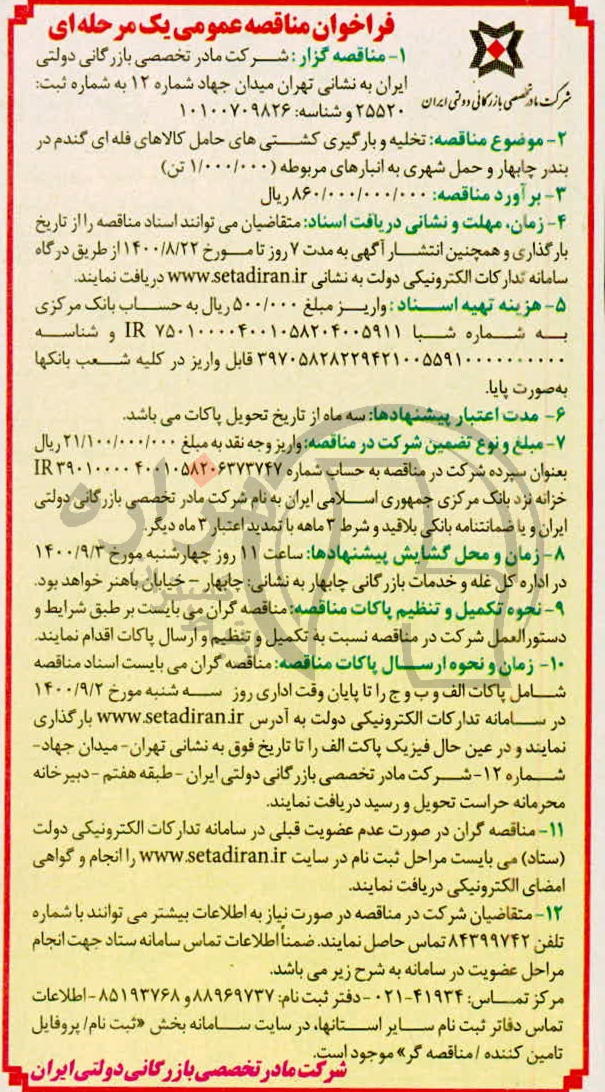 فراخوان مناقصه عمومی یک مرحله ای
شرکت مادر تخصصی بازرگانی دولتی ایران
۱- مناقصه گزار: شرکت مادر تخصصی بازرگانی دولتی
ایران به نشانی تهران میدان جهاد شماره ۱۲ به شماره ثبت:
۲۵۵۲۰ و شناسه: ۱۰۱۰۰۷۰۹۸۲۶
۲- موضوع مناقصه: تخلیه و بارگیری کشتی های حامل کالاهای فله ای گندم در
بندر چابهار و حمل شهری به انبارهای مربوطه (۱/۰۰۰/۰۰۰ تن)
۳- برآورد مناقصه: ۸۶۰/۰۰۰/۰۰۰/۰۰۰ ریال
۴- زمان، مهلت و نشانی دریافت اسناد: متقاضیان می توانند اسناد مناقصه را از تاریخ
بارگذاری و همچنین انتشار آگهی به مدت ۷ روز تا مورخ ۱۴۰۰/۸/۲۲ از طریق درگاه
سامانه تدارکات الکترونیکی دولت به نشانی www.setadiran.ir دریافت نمایند.
۵- هزینه تهیه اسناد: واریز مبلغ ۵۰۰/۰۰۰ ریال به حساب بانک مرکزی
به شماره شبا IR ۷۵۰۱۰۰۰۰۴۰۰۱۰۵۸۲۰۴۰۰۵۹۱۱ و شناسه
۳۹۷۰۵۸۲۸۲۲۹۴۲۱۰۰۵۵۹۱۰۰۰۰۰۰۰۰۰۰ قابل واریز در کلیه شعب بانکها
به‌صورت پایا.
۶- مدت اعتبار پیشنهادها: سه ماه از تاریخ تحویل پاکات می باشد.
۷- مبلغ و نوع تضمین شرکت در مناقصه: واریز وجه نقد به مبلغ ۲۱/۱۰۰/۰۰۰/۰۰۰ ریال
بعنوان سپرده شرکت در مناقصه به حساب شماره IR ۳۹۰۱۰۰۰۰۴۰۰۱۰۵۸۲۰۶۳۷۳۷۴۷
خزانه نزد بانک مرکزی جمهوری اسلامی ایران به نام شرکت مادر تخصصی بازرگانی دولتی
ایران و یا ضمانتنامه بانکی بلاقید و شرط ۳ ماهه با تمدید اعتبار ۳ ماه دیگر.
۸- زمان و محل گشایش پیشنهادها: ساعت ۱۱ روز چهارشنبه مورخ ۱۴۰۰/۹/۳
در اداره کل غله و خدمات بازرگانی چابهار به نشانی: چابهار - خیابان باهنر خواهد بود.
۹- نحوه تکمیل و تنظیم پاکات مناقصه: مناقصه گران می بایست بر طبق شرایط و
دستورالعمل شرکت در مناقصه نسبت به تکمیل و تنظیم و ارسال پاکات اقدام نمایند.
۱۰- زمان و نحوه ارسال پاکات مناقصه: مناقصه گران می بایست اسناد مناقصه
شامل پاکات الف و ب و ج را تا پایان وقت اداری روز سه شنبه مورخ ۱۴۰۰/۹/۲
در سامانه تدارکات الکترونیکی دولت به آدرس www.setadiran.ir بارگذاری
نمایند و در عین حال فیزیک پاکت الف را تا تاریخ فوق به نشانی تهران- میدان جهاد-
شماره ۱۲- شرکت مادر تخصصی بازرگانی دولتی ایران - طبقه هفتم - دبیرخانه
محرمانه حراست تحویل و رسید دریافت نمایند.
۱۱- مناقصه گران در صورت عدم عضویت قبلی در سامانه تدارکات الکترونیکی دولت
(ستاد) می بایست مراحل ثبت نام در سایت www.setadiran.ir را انجام و گواهی
امضای الکترونیکی دریافت نمایند.
۱۲- متقاضیان شرکت در مناقصه در صورت نیاز به اطلاعات بیشتر می توانند با شماره
تلفن ۸۴۳۹۹۷۴۲ تماس حاصل نمایند. ضمناً اطلاعات تماس سامانه ستاد جهت انجام
مراحل عضویت در سامانه به شرح زیر می باشد.
مرکز تماس: ۴۱۹۳۴-۰۲۱ - دفتر ثبت نام: ۸۸۹۶۹۷۳۷ و ۸۵۱۹۳۷۶۸ - اطلاعات
تماس دفاتر ثبت نام سایر استانها، در سایت سامانه بخش «ثبت نام/ پروفایل
تامین کننده / مناقصه گر» موجود است.
شرکت مادر تخصصی بازرگانی دولتی ایران